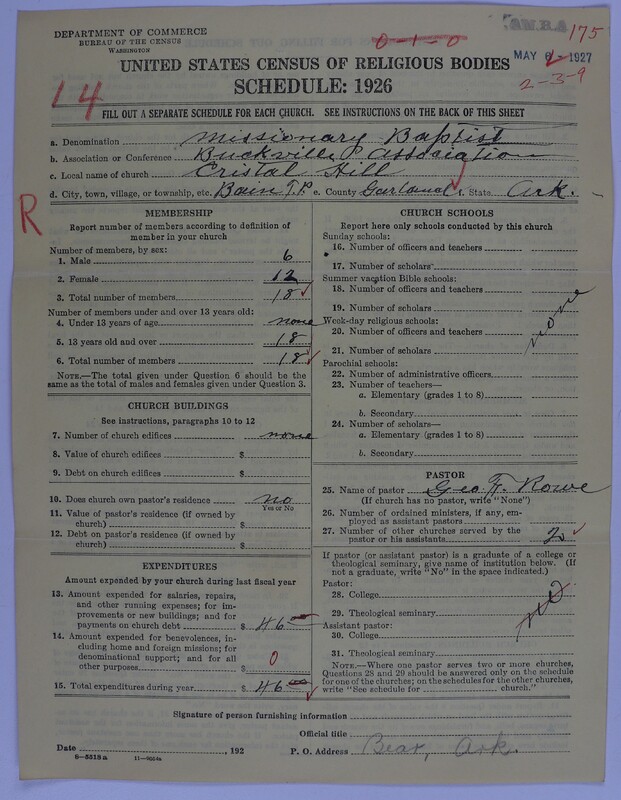 A.B.M.S.
175
DEPARTMENT OF COMMERCE
BUREAU OF THE CENSUS
WASHINGTON
0-1-0
MAY 1927
2-3-9
UNITED STATES CENSUS OF RELIGIOUS BODIES
SCHEDULE: 1926
14
FILL OUT A SEPARATE SCHEDULE FOR EACH CHURCH. SEE INSTRUCTIONS ON THE BACK OF THIS SHEET
a. Denomination Missionary Baptist
b. Association or Conference Buckville Association
c. Local name of church Cristal Hill
d. City, town, village, or township, etc. Bain T.P. e. County Garland f. State Ark.
R
MEMBERSHIP
Report number of members according to definition of
member in your church
Number of members, by sex:
1. Male 6
2. Female 12
3. Total number of members 18
Number of members under and over 13 years old:
4. Under 13 years of age none
5. 13 years old and over 18
6. Total number of members 18
NOTE.—The total given under Question 6 should be
same as the total of males and females given under Question 3.
CHURCH BUILDINGS
See instructions, paragraphs 10 to 12
7. Number of church edifices none
8. Value of church edifices $
9. Debt on church edifices $
10. Does church own pastor's residence no
Yes or No
11. Value of pastor's residence (if owned by
church) $
12. Debt on pastor's residence (if owned by
church) $
EXPENDITURES
Amount expended by your church during last fiscal year
13. Amount expended for salaries, repairs,
and other running expenses; for im-
provements or new buildings; and for
payments on church debt $ 46
14. Amount expended for benevolences, in-
cluding home and foreign missions; for
denominational support; and for all
other purposes $ 0
15. Total expenditures during year $ 46
CHURCH SCHOOLS
Report here only schools conducted by this church
Sunday schools:
16. Number of officers and teachers
17. Number of scholars
Summer vacation Bible schools:
18. Number of officers and teachers
19. Number of scholars
Week-day religious schools:
20. Number of officers and teachers
21. Number of scholars
none
Parochial schools:
22. Number of administrative officers
23. Number of teachers—
a. Elementary (grades 1 to 8)
b. Secondary
24. Number of scholars—
a. Elementary (grades 1 to 8)
b. Secondary
PASTOR
25. Name of pastor Geo. F. Rowe
(If church has no pastor, write "None")
26. Number of ordained ministers, if any, em-
ployed as assistant pastors
27. Number of other churches served by the
pastor or his assistants
If pastor (or assistant pastor) is a graduate of a college or
theological seminary, give name of institution below. (If
not a graduate, write "No" in the space indicated.)
Pastor:
28. College
29. Theological seminary
no
Assistant pastor:
30. College
31. Theological seminary
NOTE.—Where one pastor serves two or more churches,
Questions 28 and 29 should be answered only on the schedule
for one of the churches; on the schedules for the other churches,
write "See schedule for church."
Signature of person furnishing information
Official title
Date , 192 P. O. Address Bear, Ark.
8-5318a 11-9004a